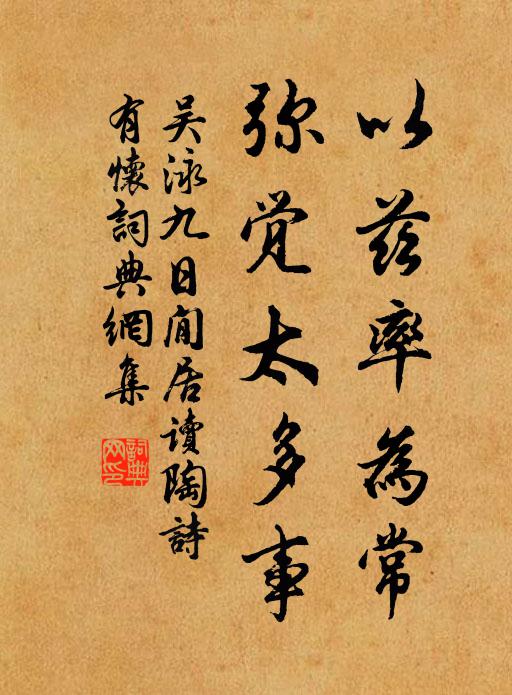 以兹率为常
弥觉太多事
吴泳九日閒居读陶詩
有懷詞典網集
詞典
网印